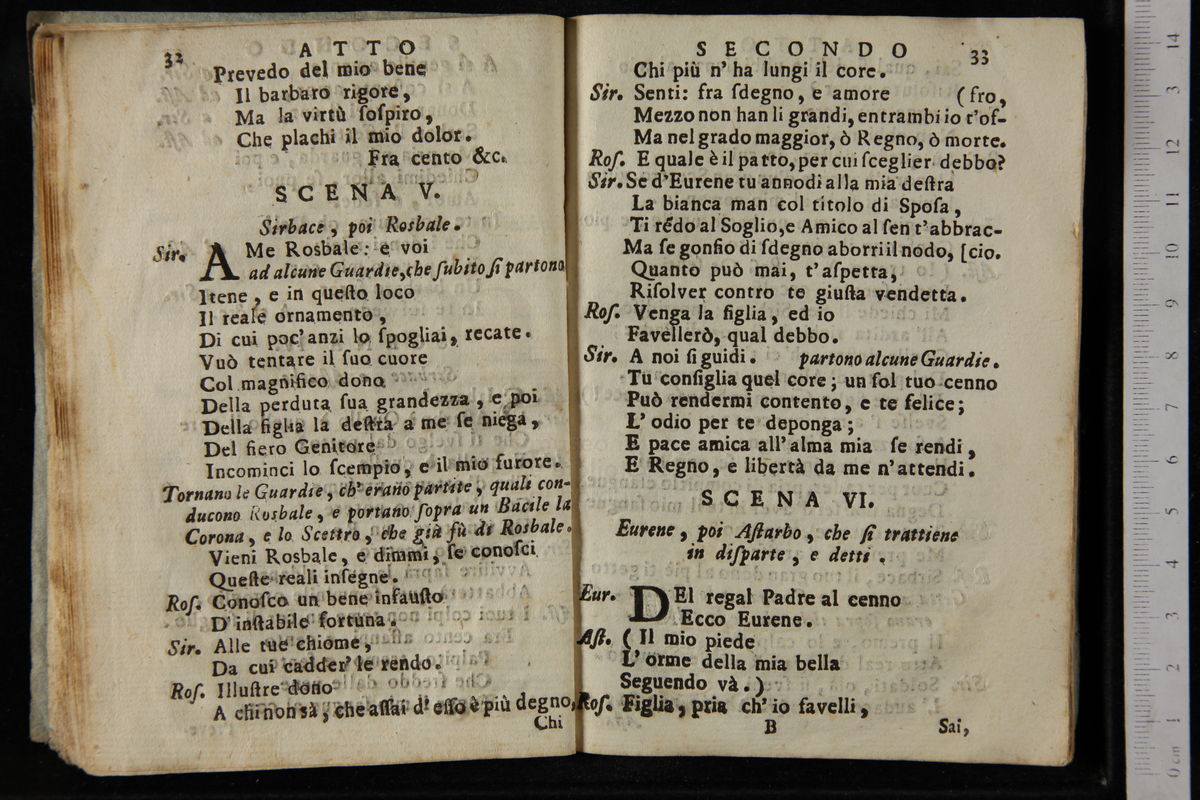 32
ATTO
Prevedo del mio bene
Il barbaro rigore,
Ma la virtù ſoſpiro,
Che plachi il mio dolor.
Fra cento &c.
SCENA V.
Sirbace, poi Rosbale.
Sir. AMe Rosbale: e voi
ad alcune Guardie, che ſubito ſi partono
Itene, e in queſto loco
Il reale ornamento,
Di cui poc'anzi lo ſpogliai, recate.
Vuò tentare il ſuo cuore
Col magnifico dono
Della perduta ſua grandezza, e poi
Della figlia la deſtra a me ſe niega,
Del fiero Genitore
Incominci lo ſcempio, e il mio furore.
Tornano le Guardie, ch'erano partite, quali con-
ducono Rosbale, e portano ſopra un Bacile la
Corona, e lo Scettro, che già fù di Rosbale.
Vieni Rosbale, e dimmi, ſe conoſci
Queſte reali inſegne.
Roſ. Conoſco un bene infauſto
D'inſtabile fortuna.
Sir. Alle tue chiome,
Da cui cadder' le rendo.
Roſ. Illuſtre dono
A chi non sà, che aſſai d'eſſo è più degno,
Chi
SECONDO
33
Chi più n'ha lungi il core.
Sir. Senti: fra ſdegno, e amore (fro,
Mezzo non han li grandi, entrambi io t'of-
Ma nel grado maggior, ò Regno, ò morte.
Roſ. E quale è il patto, per cui ſceglier debbo?
Sir. Se d'Eurene tu annodi alla mia deſtra
La bianca man col titolo di Spoſa,
Ti rẽdo al Soglio, e Amico al ſen t'abbrac-
Ma ſe gonfio di ſdegno aborri il nodo, [cio.
Quanto può mai, t'aſpetta,
Riſolver contro te giuſta vendetta.
Roſ. Venga la figlia, ed io
Favellerò, qual debbo.
Sir. A noi ſi guidi. partono alcune Guardie.
Tu conſiglia quel core; un ſol tuo cenno
Può rendermi contento, e te felice;
L'odio per te deponga;
E pace amica all'alma mia ſe rendi,
E Regno, e libertà da me n'attendi.
SCENA VI.
Eurene, poi Aſtarbo, che ſi trattiene
in diſparte, e detti.
Eur. DEl regal Padre al cenno
Ecco Eurene.
Aſt. (Il mio piede
L'orme della mia bella
Seguendo và.)
Roſ. Figlia, pria ch'io favelli,
B
Sai,
0 cm 1 2 3 4 5 6 7 8 9 10 11 12 13 14